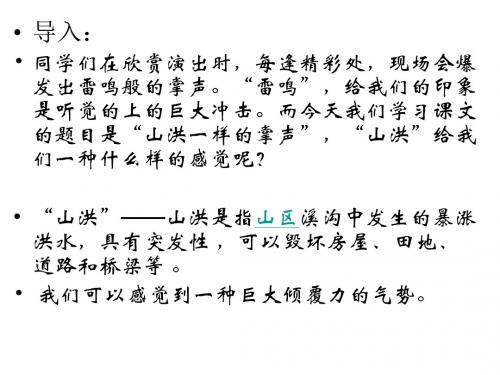 • 导入：
• 同学们在欣赏演出时，每逢精彩处，现场会爆
发出雷鸣般的掌声。“雷鸣”，给我们的印象
是听觉的上的巨大冲击。而今天我们学习课文
的题目是“山洪一样的掌声”，“山洪”给我
们一种什么样的感觉呢？
• “山洪”——山洪是指山区溪沟中发生的暴涨
洪水，具有突发性 ，可以毁坏房屋、田地、
道路和桥梁等 。
• 我们可以感觉到一种巨大倾覆力的气势。